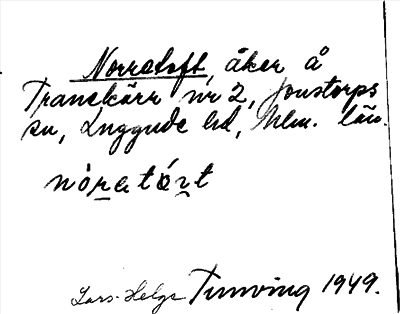 Norratoft, åker å
Tranekärr nr 2, Jonstorps
sn, Luggude hd, Mlm. län.
nòratóft
Lars-Helge Tunving 1949.